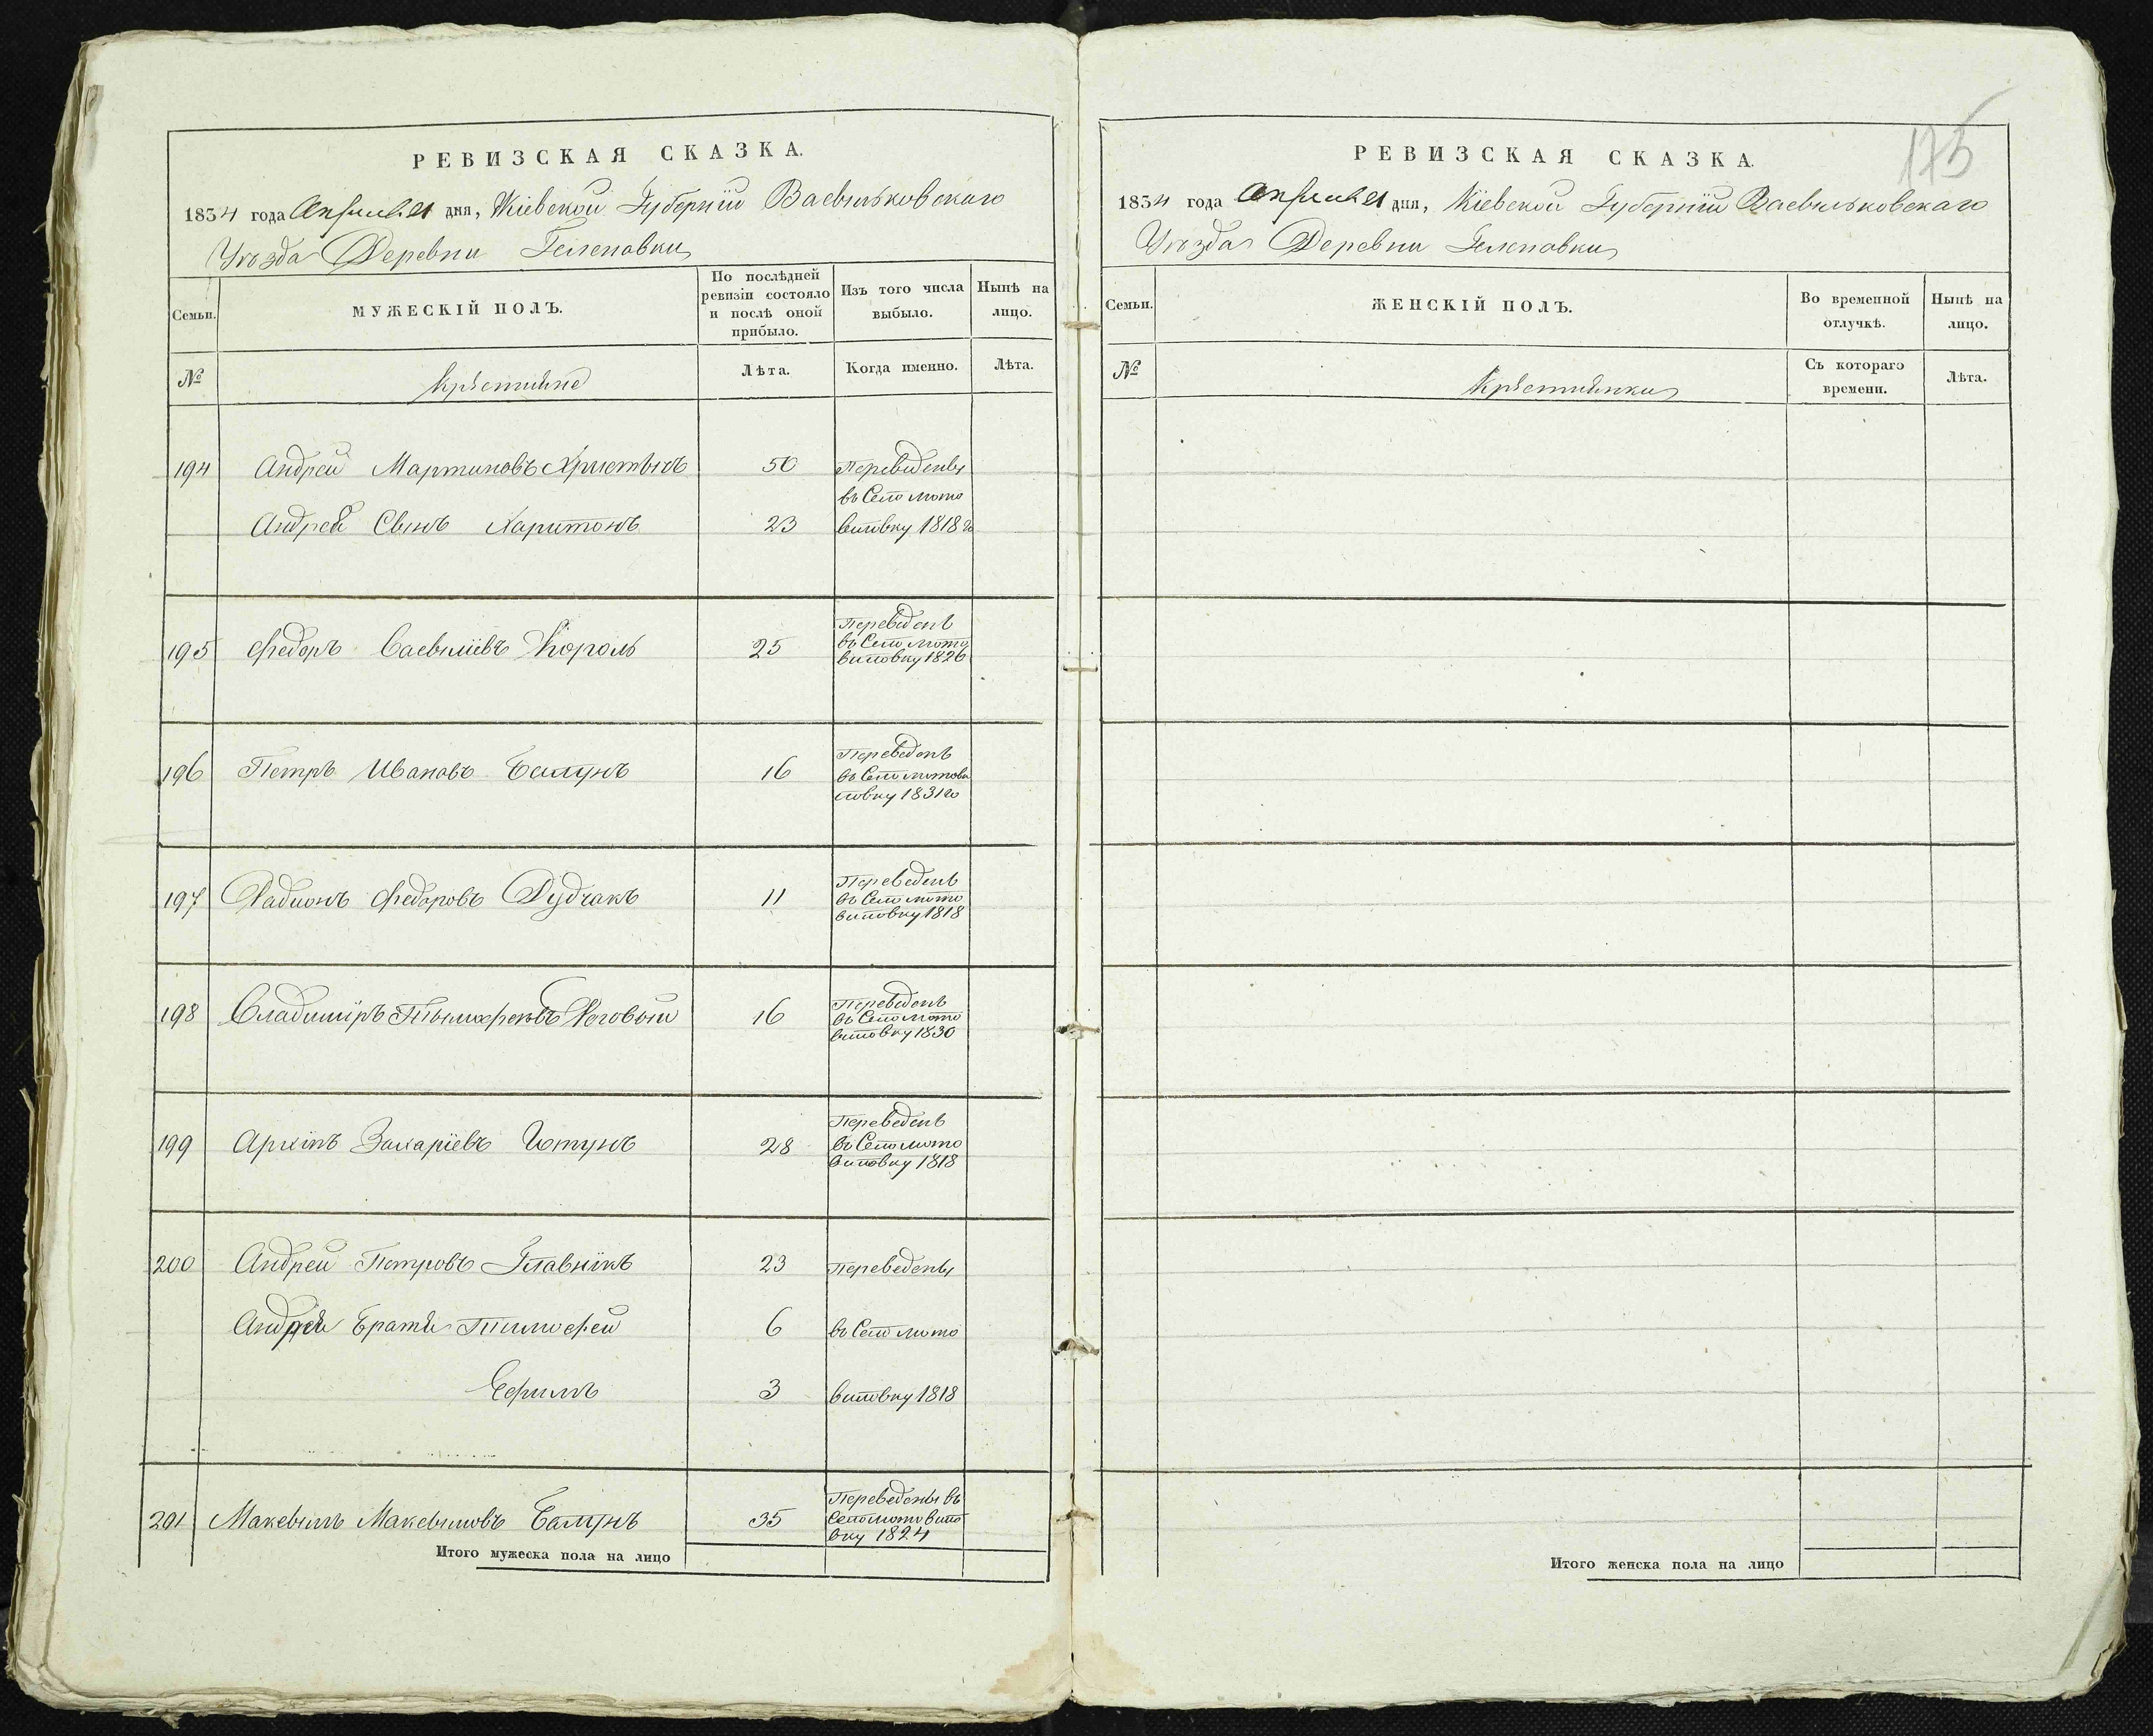 РЕВИЗСКАЯ СКАЗКА.
1834 года Апреля 21 дня, Кіевской Губерніи Васыльковскаго
Уѣзда Деревни Гелеповки
Семьи.
МУЖЕСКІЙ ПОЛЪ.
По послѣдней ревизіи состояло и послѣ оной прибыло.
Изъ того числа выбыло.
Нынѣ на лицо.
№
Крестьяне
Лѣта.
Когда именно.
Лѣта.
194 Андрей Мартиновъ 50 Переведены
въ Село Мото
Андрея Сынъ Харитонъ 23 виловку 1818 го
195 Федоръ Савыліевъ Король 25 Переведенъ
въ Село Мото
виловку 1826
196 Петръ Ивановъ Балунъ 16 Переведенъ
въ Село Мотови
ловку 1831 го
197 Радионъ Федоровъ Дудчакъ 11 Переведенъ
въ Село Мото
виловку 1818
198 Владиміръ Тымофеевъ 16 Переведенъ
въ Село Мото
виловку 1830
199 Архіпъ Захаріевъ 28 Переведенъ
въ Село Мото
виловку 1818
200 Андрей Петровъ Главнікъ 23 Переведены
Андрея Братья Тимофей 6 въ Село Мото
Ефимъ 3 виловку 1818
201 Максымъ Максымовъ Балунъ 35 Переведены въ
Село Мотовило
вку 1824
Итого мужеска пола на лицо
175
РЕВИЗСКАЯ СКАЗКА.
1834 года Апреля 21 дня, Кіевской Губерніи Васыльковскаго
Уѣзда Деревни Гелеповки
Семьи.
ЖЕНСКІЙ ПОЛЪ.
Во временной отлучкѣ.
Нынѣ на лицо.
№
Крестьянки
Съ котораго времени.
Лѣта.
Итого женска пола на лицо